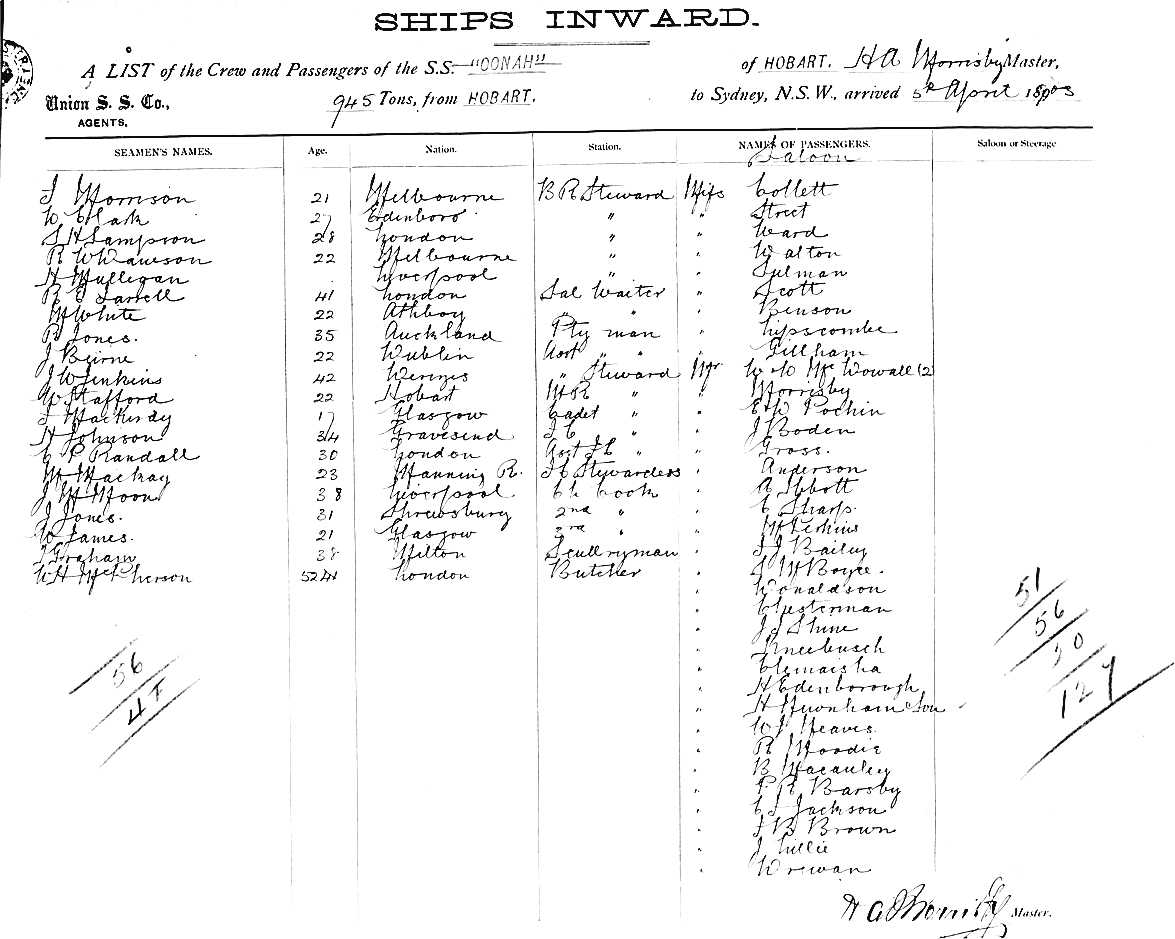 SHIPS INWARD.
A LIST of the Crew and Passengers of the S.S. "OONAH" of HOBART. H A Morrisby Master,
Union S. S. Co., 945 Tons, from HOBART. to Sydney, N.S.W., arrived 5th April 1903
AGENTS.
SEAMEN'S NAMES. Age. Nation. Station. NAMES OF PASSENGERS. Saloon or Steerage
Saloon
J Morrison 21 Melbourne B R Steward Miss Collett
W Clark 27 Edenboro " " Street
S H Sampson 28 London " " Ward
R W 22 Melbourne " " Walton
H Mulligan Liverpool " "
R E 41 London Sal Waiter " Scott
M White 22 Athboy " " " Benson
R Jones. 35 Auckland Pty man " Lipscombe
J Beirne 22 Dublin Asst " " " Gillham
J W Jenkins 42 " Steward Mr W D Mc Dowall (2)
W Stafford 22 Hobart " " Morrisby
Mackirdy 17 Glasgow Cadet " " Pochin
H Johnson 34 Gravesend " " J Boden
C P Randall 30 London Asst " " Gross.
M Mackay 23 Manning R. Stewardess " Anderson
J M Moon 38 Liverpool Ch Cook " A Abbott
J Jones. 31 Shrewsbury 2nd " " C Sharp.
W James. 21 Glasgow 3rd " " Perkins
T Graham 38 Milton Scullryman " Bailey
W H McPherson 52 London Butcher " Boyce.
" Donaldson
" Chesterman
" Shine
" Kneebusch
"
" H Edenborough
" H & Son
" W J Meaves
" R Moodie
" B Macauley
" P R Barsby
" C J Jackson
" J B Brown
" J Lillie
" Drewan
56
51
56
127
H A Morrisby Master.